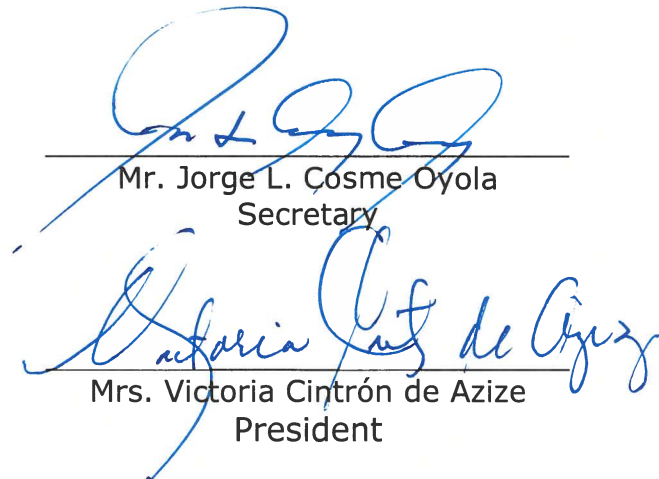 Mr. Jorge L. Cosme Oyola
Secretary
Victoria de Azize
Mrs. Victoria Cintrón de Azize
President